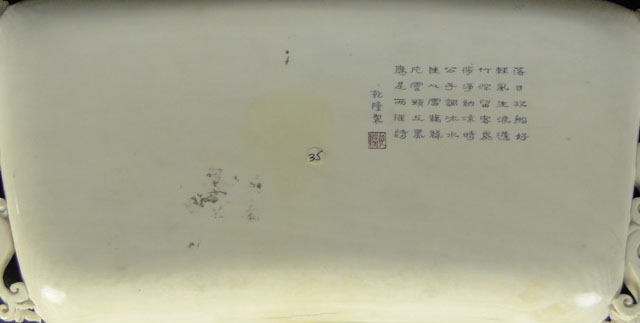 落日放船好
輕風生浪遲
竹深留客處
荷淨納涼時
公子調冰水
佳人雪藕絲
片雲頭上黑
應是雨催詩
乾隆製
35